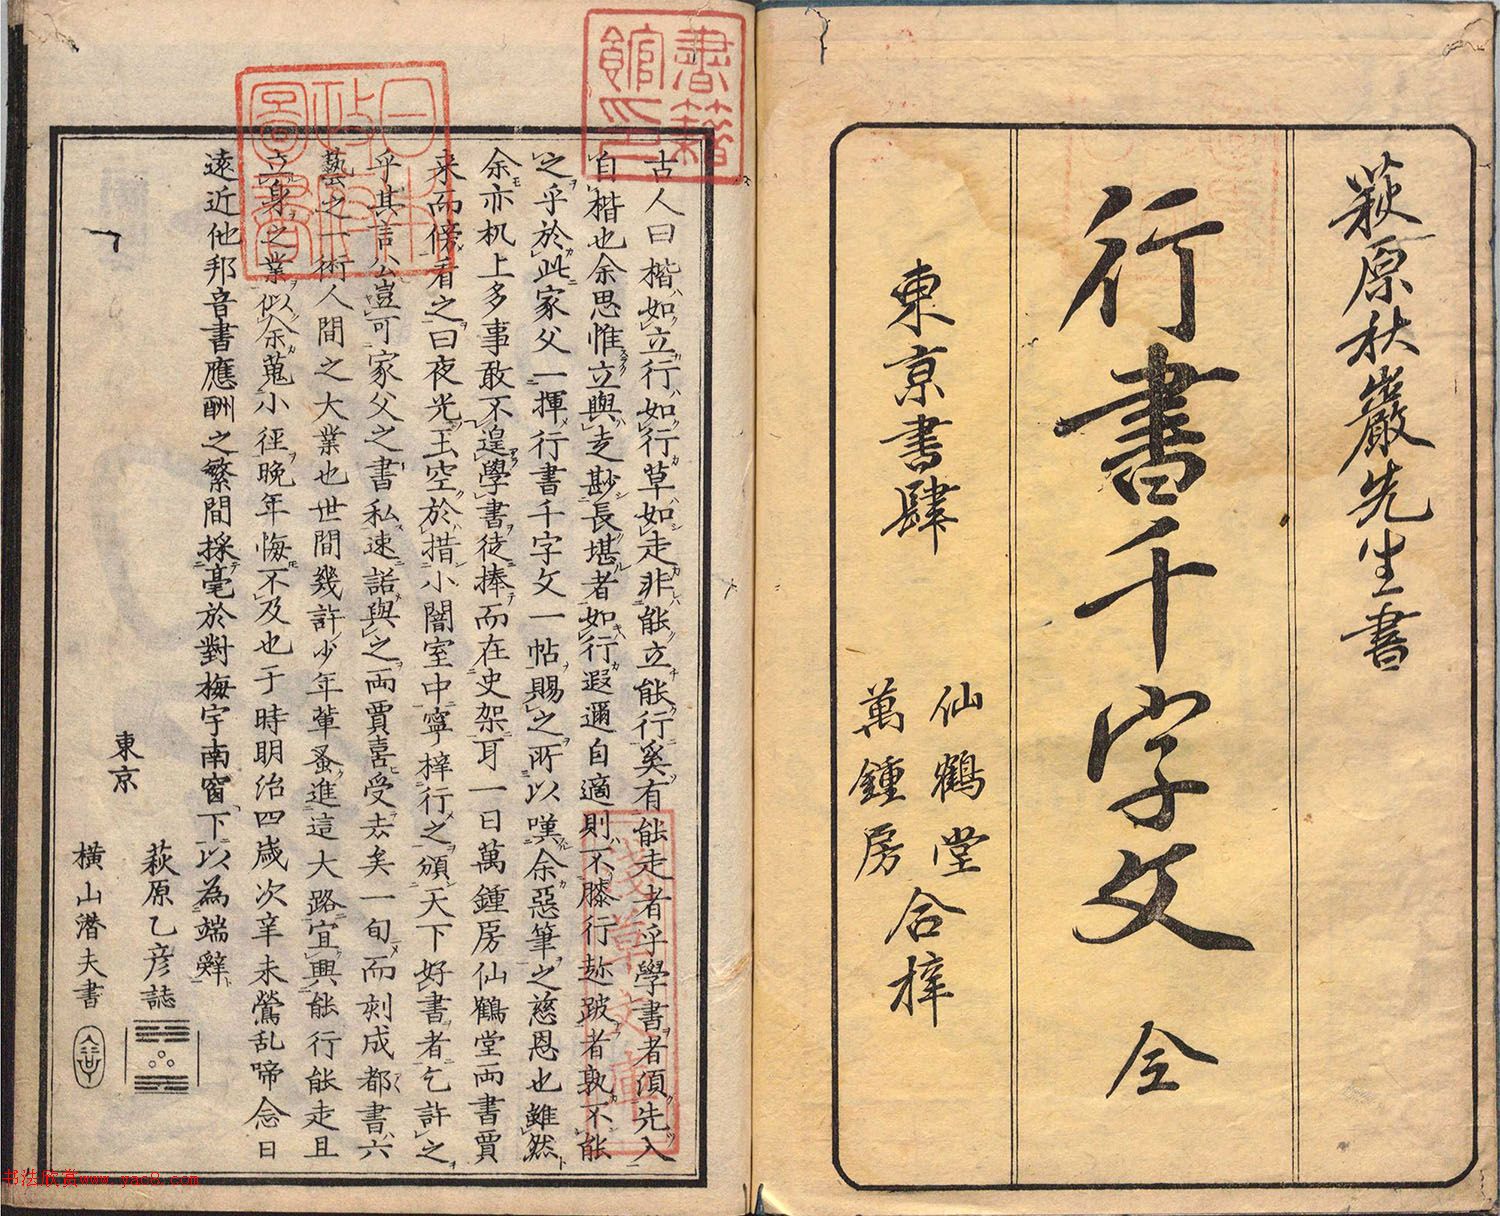 萩原秋巖先生書
行書千字文 全
東京書肆
仙鶴堂
萬鍾房
合梓
書籍館印
日本政府圖書
淺草文庫
古人曰楷如立行如行草如走非能立能行奚有能走者乎學書者須先入
自楷也余思惟立與走尠長堪者如行遐邇自適則不膝行趁跛者孰不能
之乎於此家父一揮行書千字文一帖賜之所以嘆余惡筆之慈恩也雖然
余亦机上多事敢不遑學書徒捧而在史架耳一日萬鍾房仙鶴堂両書賈
来而傍看之曰夜光玉空於措小闇室中寧梓行之頒天下好書者乞許之
乎其言公豈可家父之書私速諾與之両賈喜受去矣一旬而刻成都書六
藝之一術人間之大業也世間幾許少年輩蚤進這大路宜興能行能走且
立身之業似余蒐小徑晚年悔不及也于時明治四歳次辛未鶯乱啼念日
遠近他邦音書應酬之繁間採毫於對梅宇南窗下以為端辭
東京
萩原乙彦誌
橫山潜夫書
书法欣赏www.yac8.com